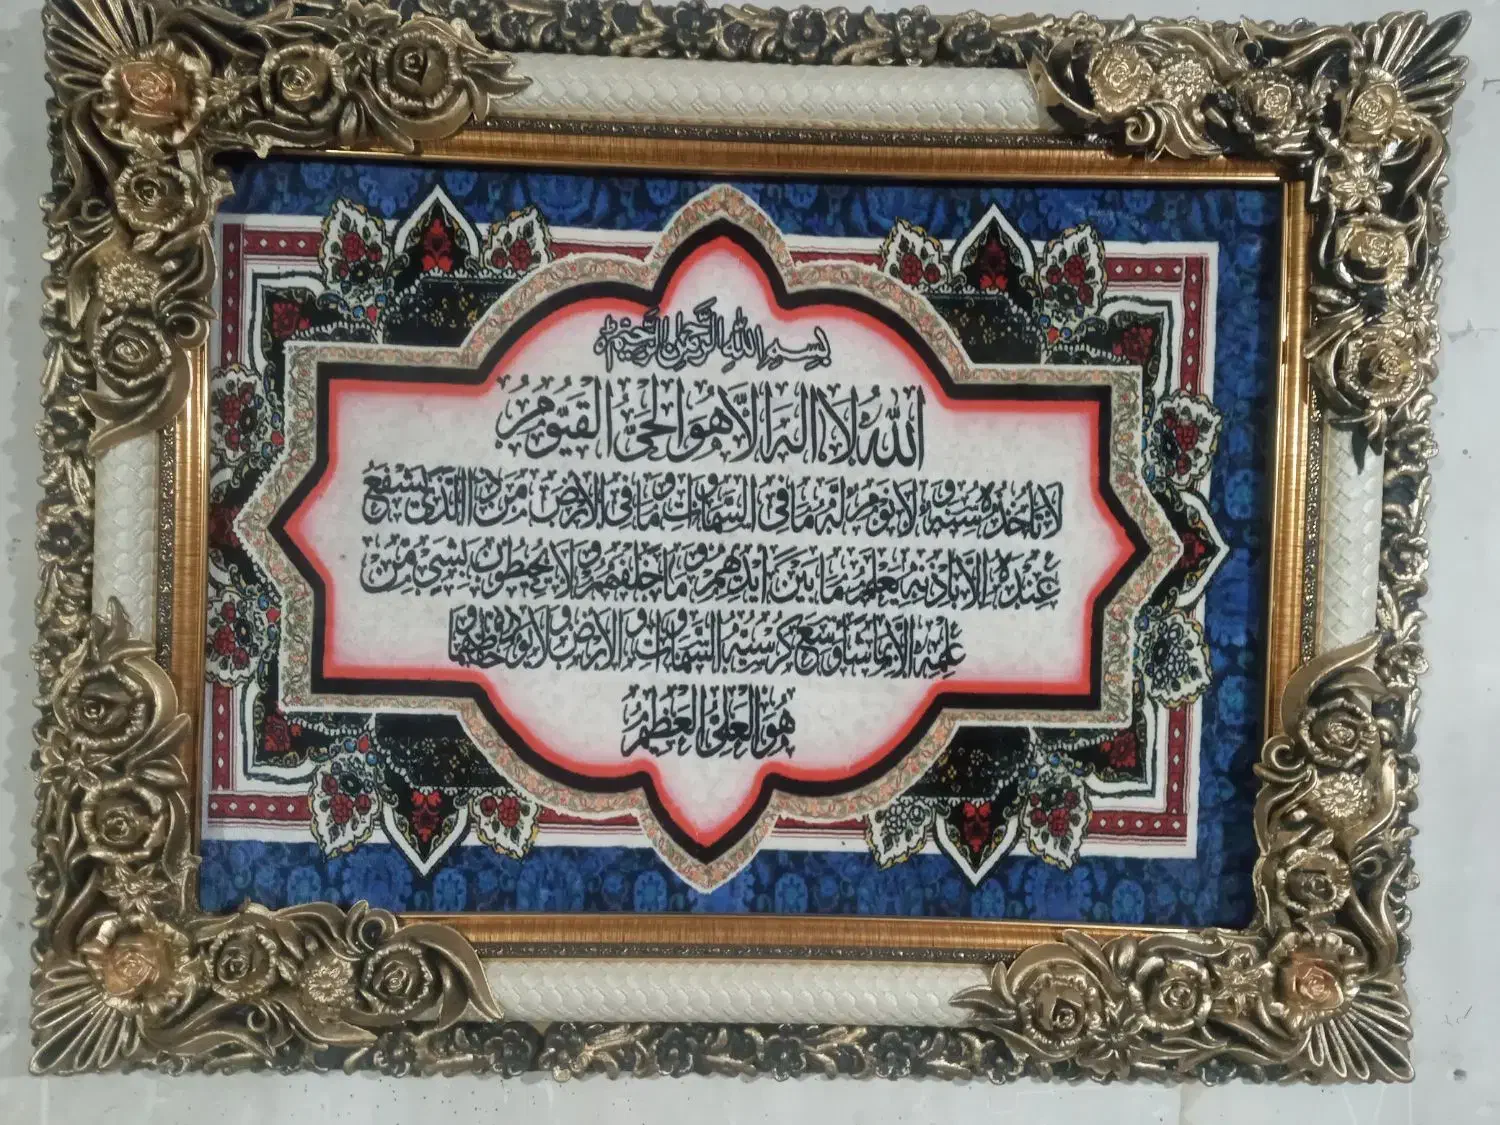 بِسْمِ اللهِ الرَّحْمٰنِ الرَّحِيْمِ
اَللهُ لَا اِلٰهَ اِلَّا هُوَ الْحَيُّ الْقَيُّوْمُ
لَا تَأْخُذُهٗ سِنَةٌ وَّلَا نَوْمٌ لَهٗ مَا فِى السَّمٰوٰتِ وَمَا فِى الْاَرْضِ مَنْ ذَا الَّذِيْ يَشْفَعُ
عِنْدَهٗ اِلَّا بِاِذْنِهٖ يَعْلَمُ مَا بَيْنَ اَيْدِيْهِمْ وَمَا خَلْفَهُمْ وَلَا يُحِيْطُوْنَ بِشَيْءٍ مِّنْ
عِلْمِهٖ اِلَّا بِمَا شَآءَ وَسِعَ كُرْسِيُّهُ السَّمٰوٰتِ وَالْاَرْضَ وَلَا يَـُٔوْدُهٗ حِفْظُهُمَا وَ
هُوَ الْعَلِيُّ الْعَظِيْمُ